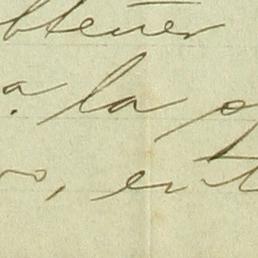 obtener
a. la p
o, ent